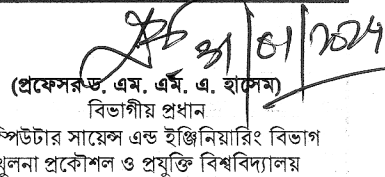 (প্রফেসর ড. এম. এম. এ. হাসেম)
বিভাগীয় প্রধান
কম্পিউটার সায়েন্স এন্ড ইঞ্জিনিয়ারিং বিভাগ
খুলনা প্রকৌশল ও প্রযুক্তি বিশ্ববিদ্যালয়